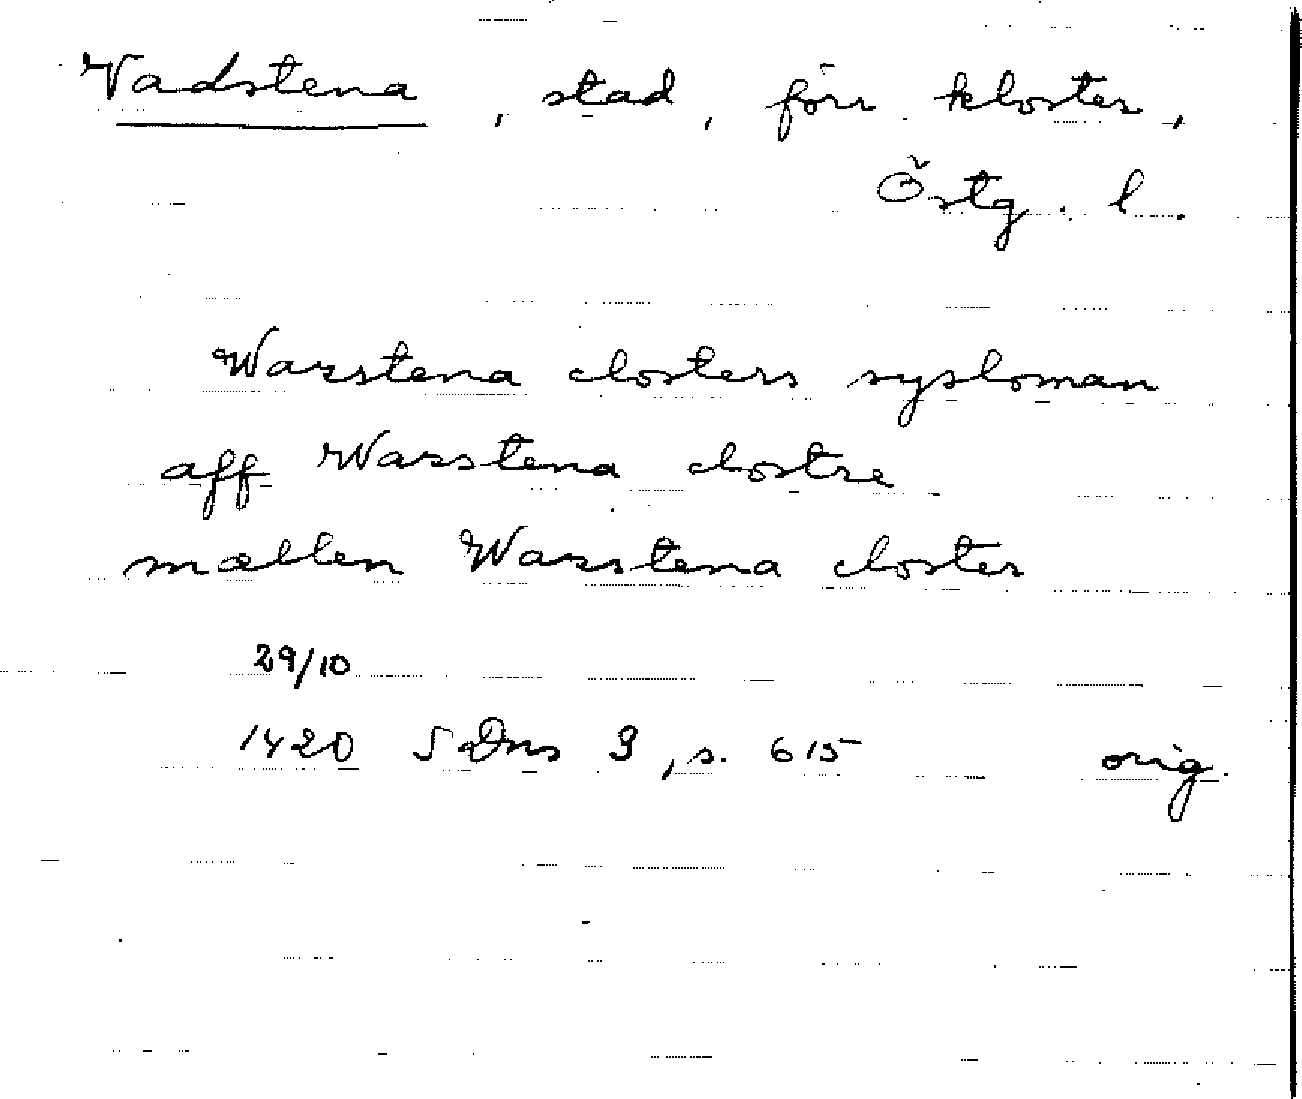 Vadstena, stad, förr kloster,
Östg. l.
Warstena closters sysloman
aff Warstena clostre
mællen Warstena closter
29/10
1420 SDns 3, s. 615 orig.